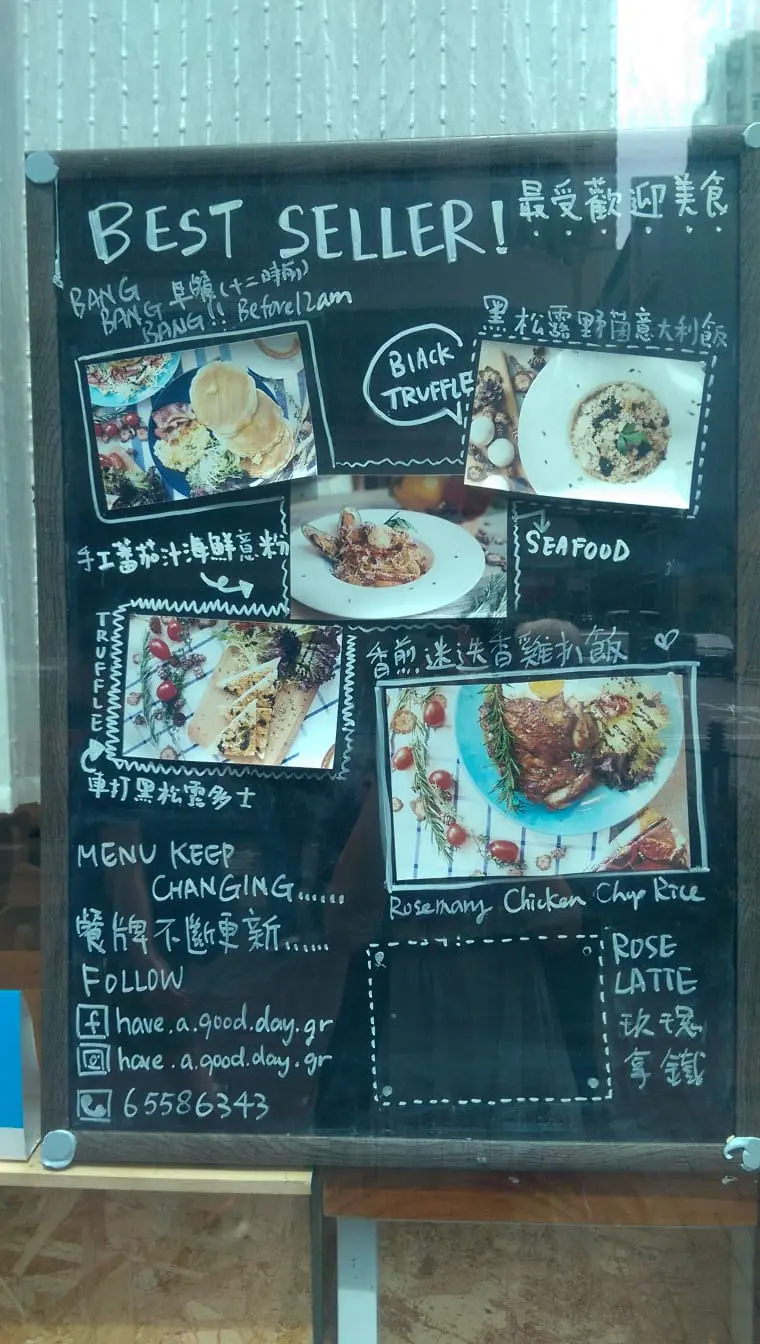 BEST SELLER!
最受歡迎美食
BANG
BANG 早餐(十二時前)
BANG!! Before 12am
BLACK
TRUFFLE
黑松露野菌意大利飯
手工蕃茄汁海鮮意粉
SEAFOOD
TRUFFLE
車打黑松露多士
香煎迷迭香雞扒飯
Rosemary Chicken Chop Rice
MENU KEEP
CHANGING......
餐牌不斷更新......
FOLLOW
have.a.good.day.gr
have.a.good.day.gr
65586343
ROSE
LATTE
玫瑰
拿鐵